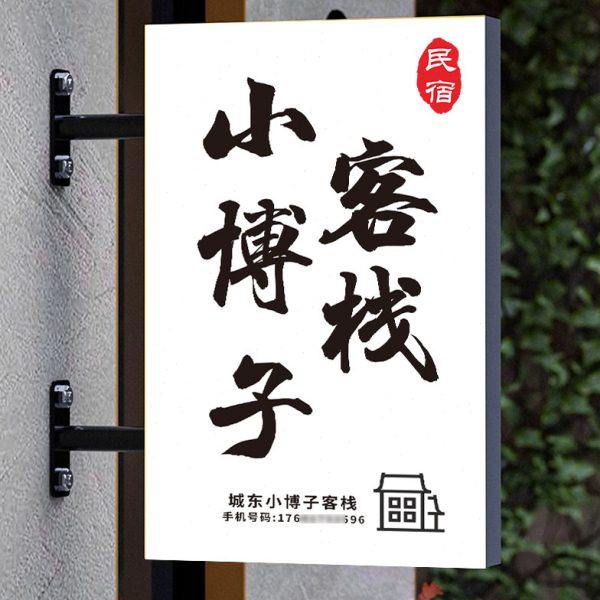 民宿
小博子
客栈
城东小博子客栈
手机号码:176 596